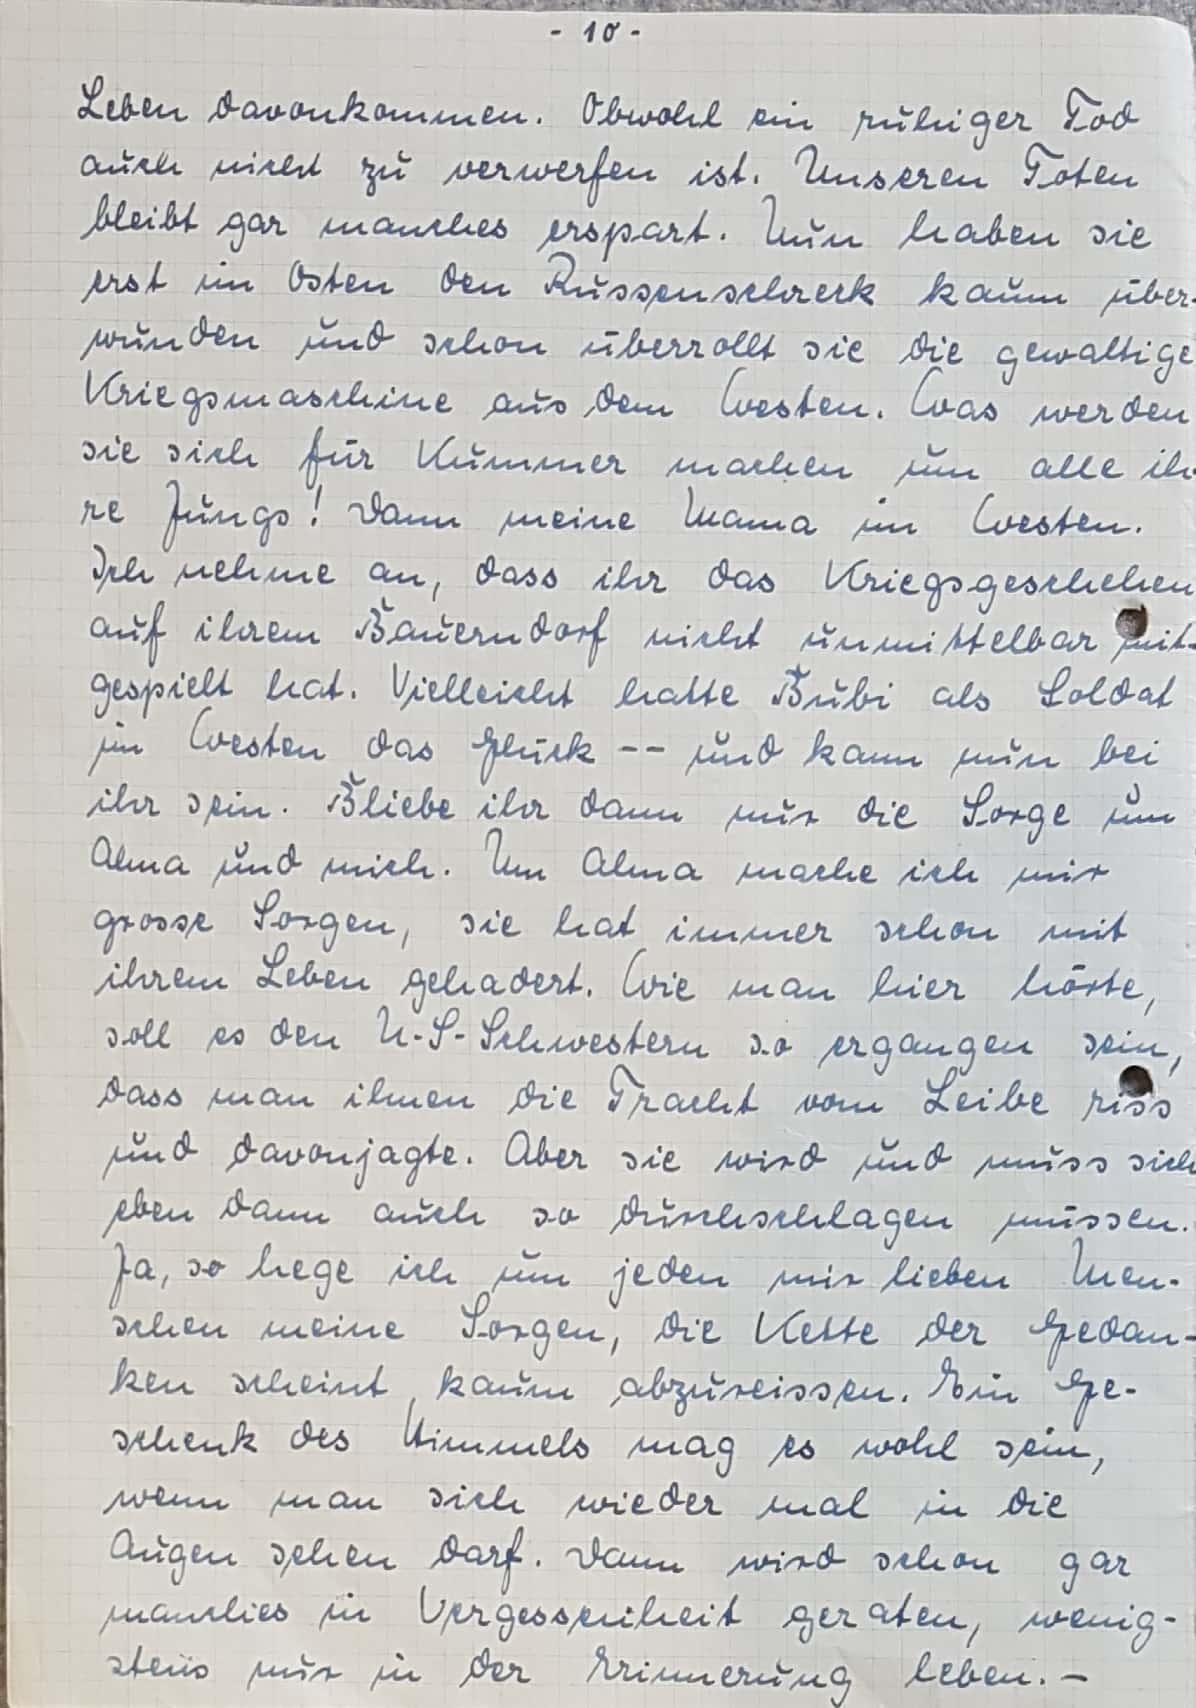 - 10 -
Leben davonkommen. Obwohl ein ruhiger Tod
auch nicht zu verwerfen ist. Unseren Toten
bleibt gar manches erspart. Nun haben sie
erst im Osten den Russenschreck kaum über-
wunden und schon überrollt sie die gewaltige
Kriegsmaschine aus dem Westen. Was werden
sie sich für Kummer machen um alle ih-
re Jungs! Dann meine Mama im Westen.
Ich nehme an, dass ihr das Kriegsgeschehen
auf ihrem Bauerndorf nicht unmittelbar mit-
gespielt hat. Vielleicht hatte Bubi als Soldat
im Westen das Glück -- und kann nun bei
ihr sein. Bliebe ihr dann nur die Sorge um
Alma und mich. Um Alma mache ich mir
grosse Sorgen, sie hat immer schon mit
ihrem Leben gehadert. Wie man hier hörte,
soll es den N-S-Schwestern so ergangen sein,
dass man ihnen die Tracht vom Leibe riss
und davonjagte. Aber sie wird und muss sich
eben dann auch so durchschlagen müssen.
Ja, so hege ich um jeden mir lieben Men-
schen meine Sorgen, die Kette der Gedan-
ken scheint kaum abzureissen. Ein Ge-
schenk des Himmels mag es wohl sein,
wenn man sich wieder mal in die
Augen sehen darf. Dann wird schon gar
manches in Vergessenheit geraten, wenig-
stens nur in der Erinnerung leben. -